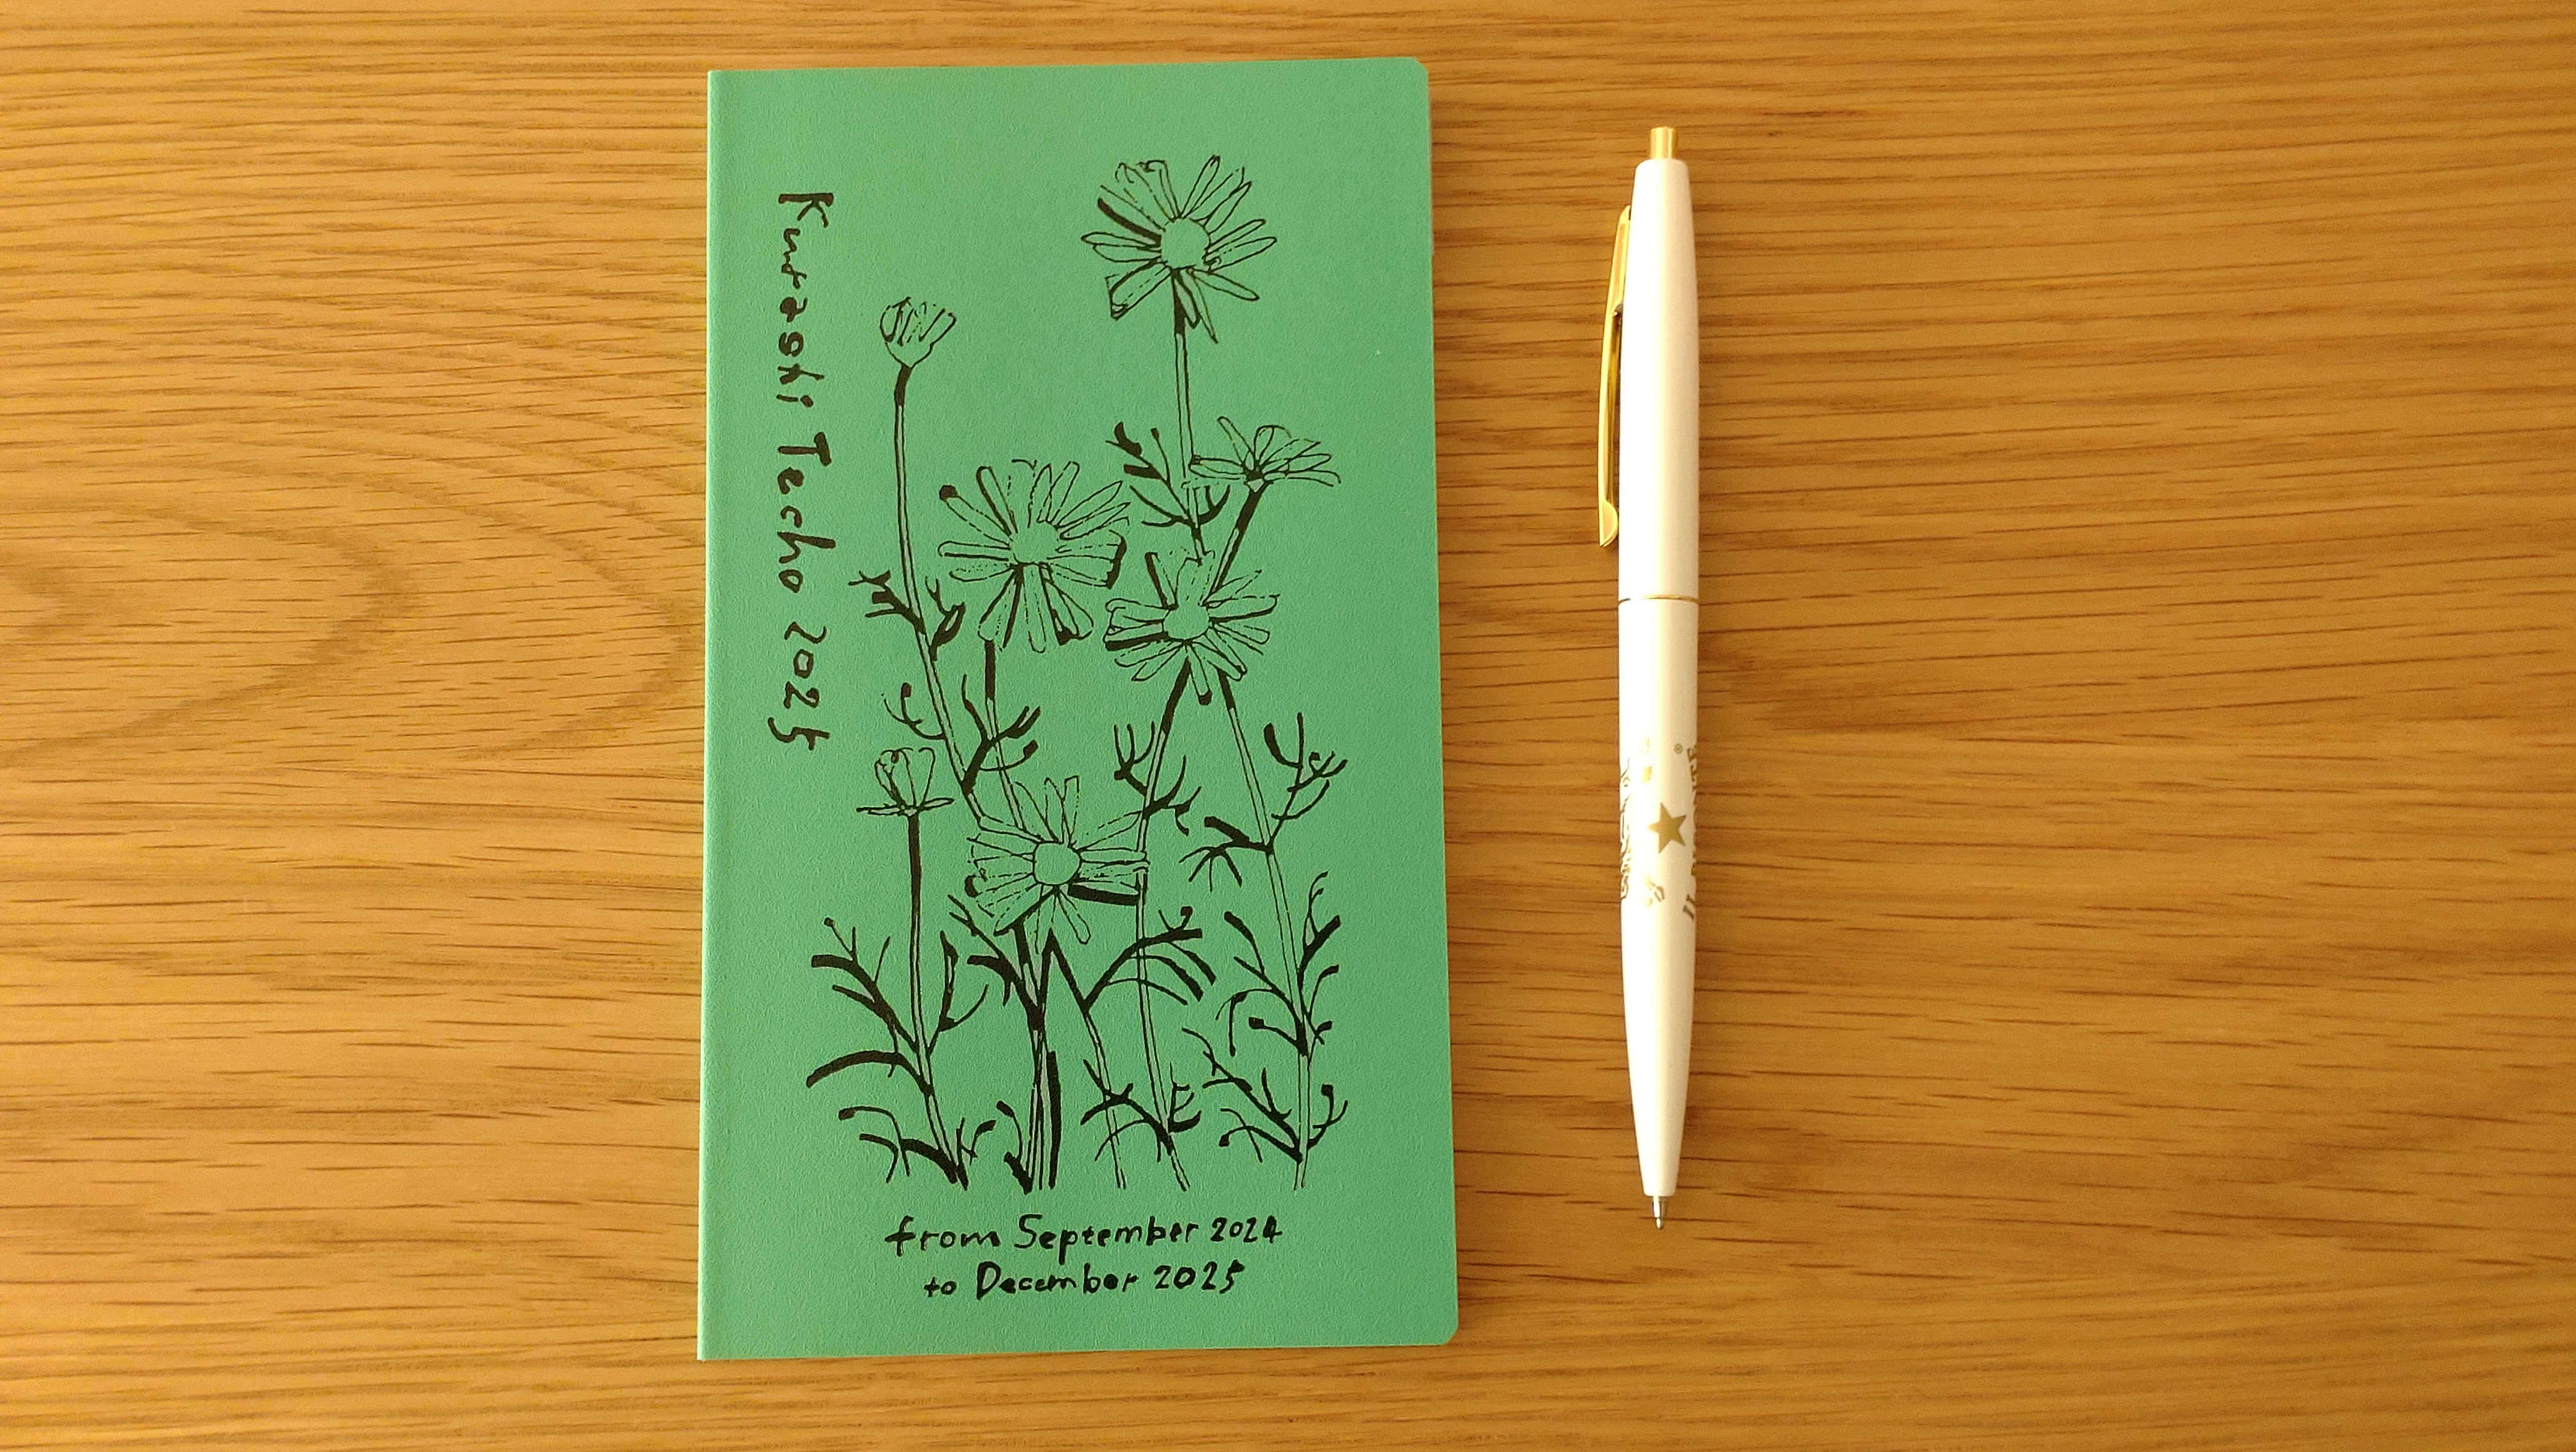 Kurasshi Techo 2025
from September 2024
to December 2025